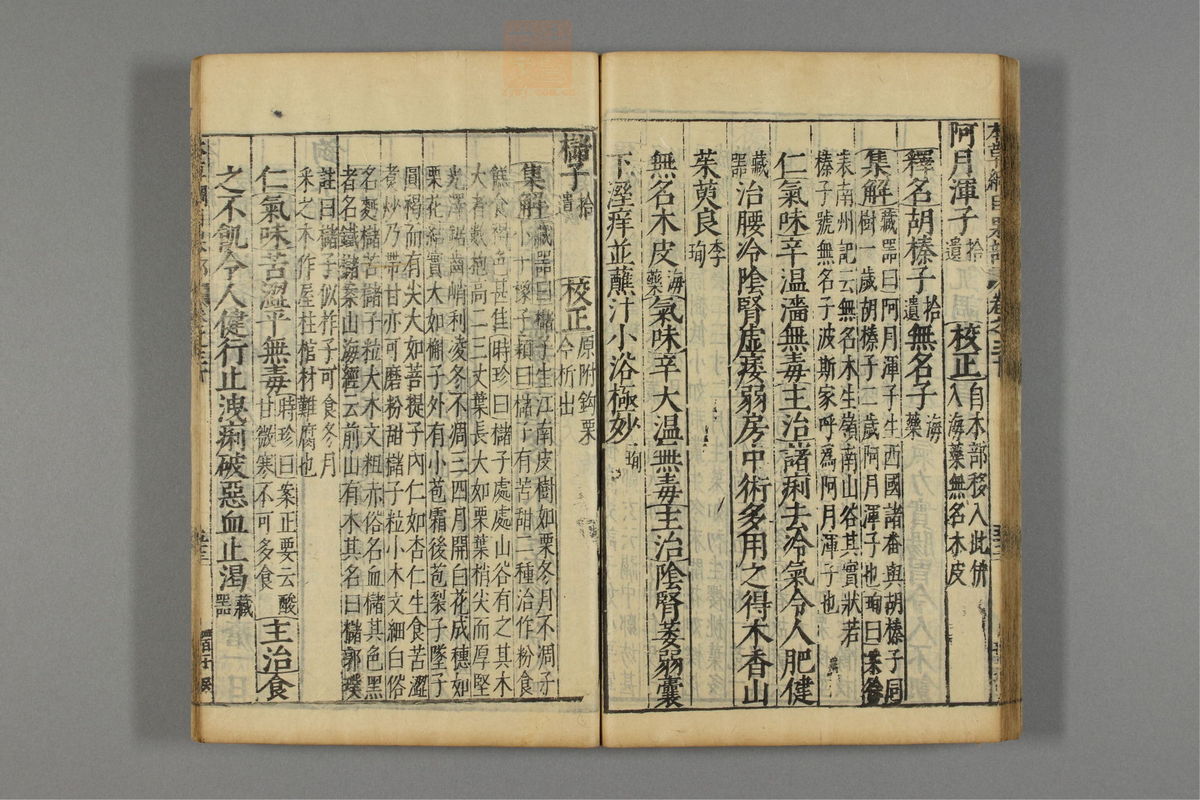 阿月渾子拾遺 校正自本部移入此併入海藥無名木皮
釋名胡榛子拾遺無名子海藥
集解藏器曰阿月渾子生西國諸番與胡榛子同
樹一歲胡榛子二歲阿月渾子也珣曰案徐
表南州記云無名木生嶺南山谷其實狀若
榛子號無名子波斯家呼為阿月渾子也
仁氣味辛温濇無毒主治諸痢去冷氣令人肥健
藏器治腰冷陰腎虛痿弱房中術多用之得木香山
茱萸良李珣
無名木皮海藥氣味辛大温無毒主治陰腎萎弱囊
下溼痒並蘸汁小浴極妙珣
櫧子拾遺 校正原附鈎栗今析出
集解藏器曰櫧子生江南皮樹如栗冬月不凋子
小于橡子穎曰櫧子有苦甜二種治作粉食
餻食褐色甚佳時珍曰櫧子處處山谷有之其木
大者數抱高二三丈葉長大如栗葉稍尖而厚堅
光澤鋸齒峭利凌冬不凋三四月開白花成穗如
栗花結實大如槲子外有小苞霜後苞裂子墜子
圓褐而有尖大如菩提子內仁如杏仁生食苦澀
煑炒乃帶甘亦可磨粉甜櫧子粒小木文細白俗
名麪櫧苦櫧子粒大木文粗赤俗名血櫧其色黑
者名鐵櫧案山海經云前山有木其名曰櫧郭璞
註曰櫧子似柞子可食冬月
采之木作屋柱棺材難腐也
仁氣味苦澀平無毒時珍曰案正要云酸甘微寒不可多食主治食
之不飢令人健行止洩痢破惡血止渴藏器